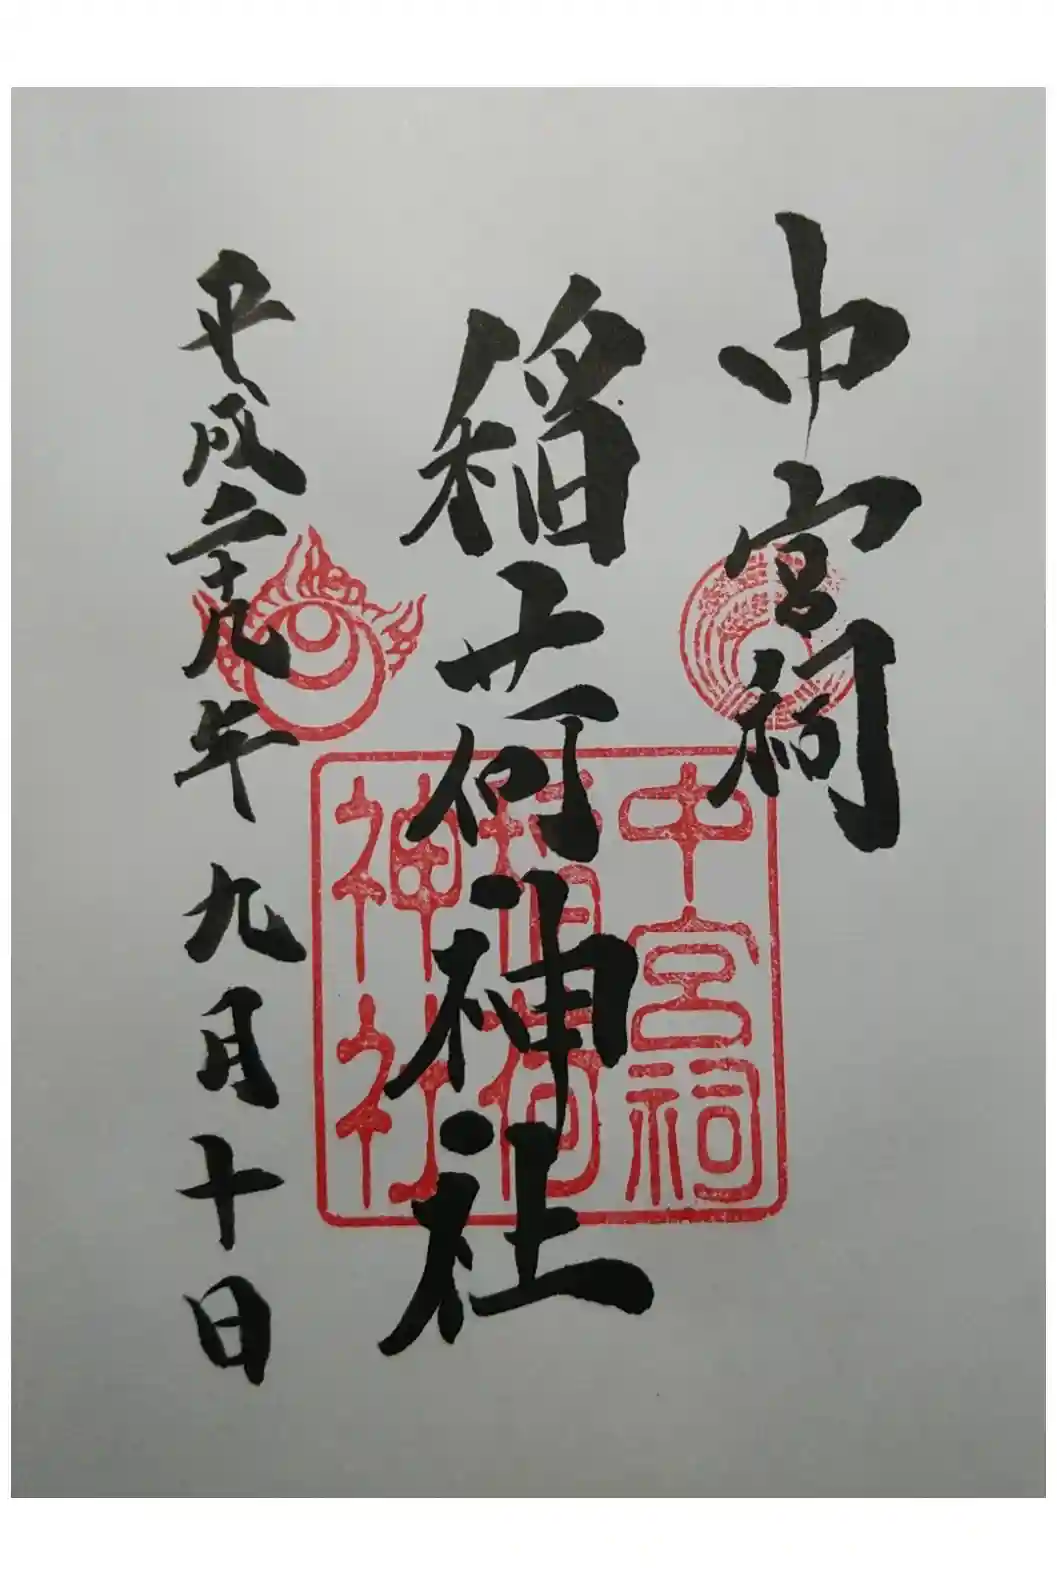 中宮祠
稲荷神社
平成二十九年 九月十日
中宮祠
稲荷
神社